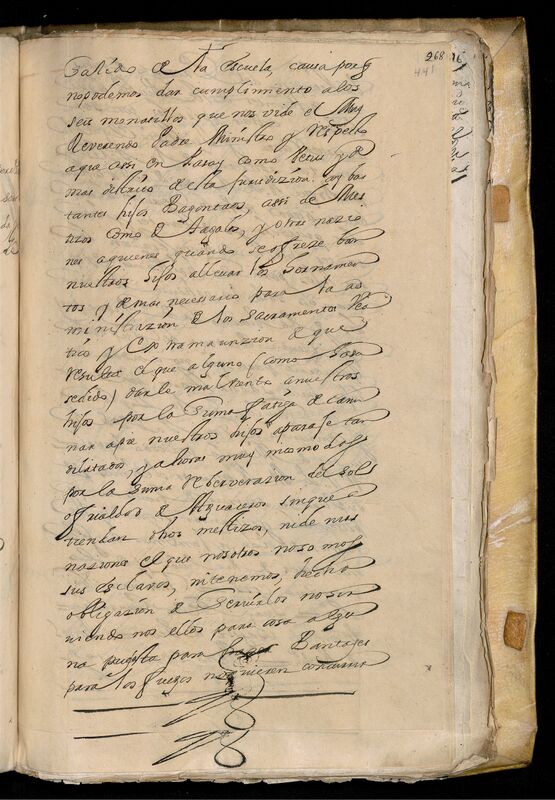 268
441
Salido de la escuela, causa porq
nopodemos dar cumplimiento alos
seis monasillos que nos pide el Muy
Reverendo Padre Ministro y respecto
aque assi en como y de
mas distrito desta Jurisdizion ay bas
tantes hijos Bagontaos, assi de Mes
tizos como de tagalos, y otras nazio
nes aquienes quando se ofreze ban
nuestros hijos allevar los hornamen
tos y demas necessario para la ad
ministrazion de los Sacramentos Vea
tico y Extramaunzion de que
resulta el que alguno (como ha su
sedido) darle mal viento anuestros
hijos por la suma fatiga de cami
nar apie nuestros hijos aparaje tan
dilatados, y ahoras muy incomodas
por la suma reberverazion del sol
o frialdad de Aguaceros sin que
tiendan otros mestizos, nide mas
naziones el que nosotros no somos
sus esclavos, nitenemos, hecho
obligazion de servirlos no sir
viendo nos ellos para cosa algu
na puesta para Bantajes
para los fuegos no quieren concurrir